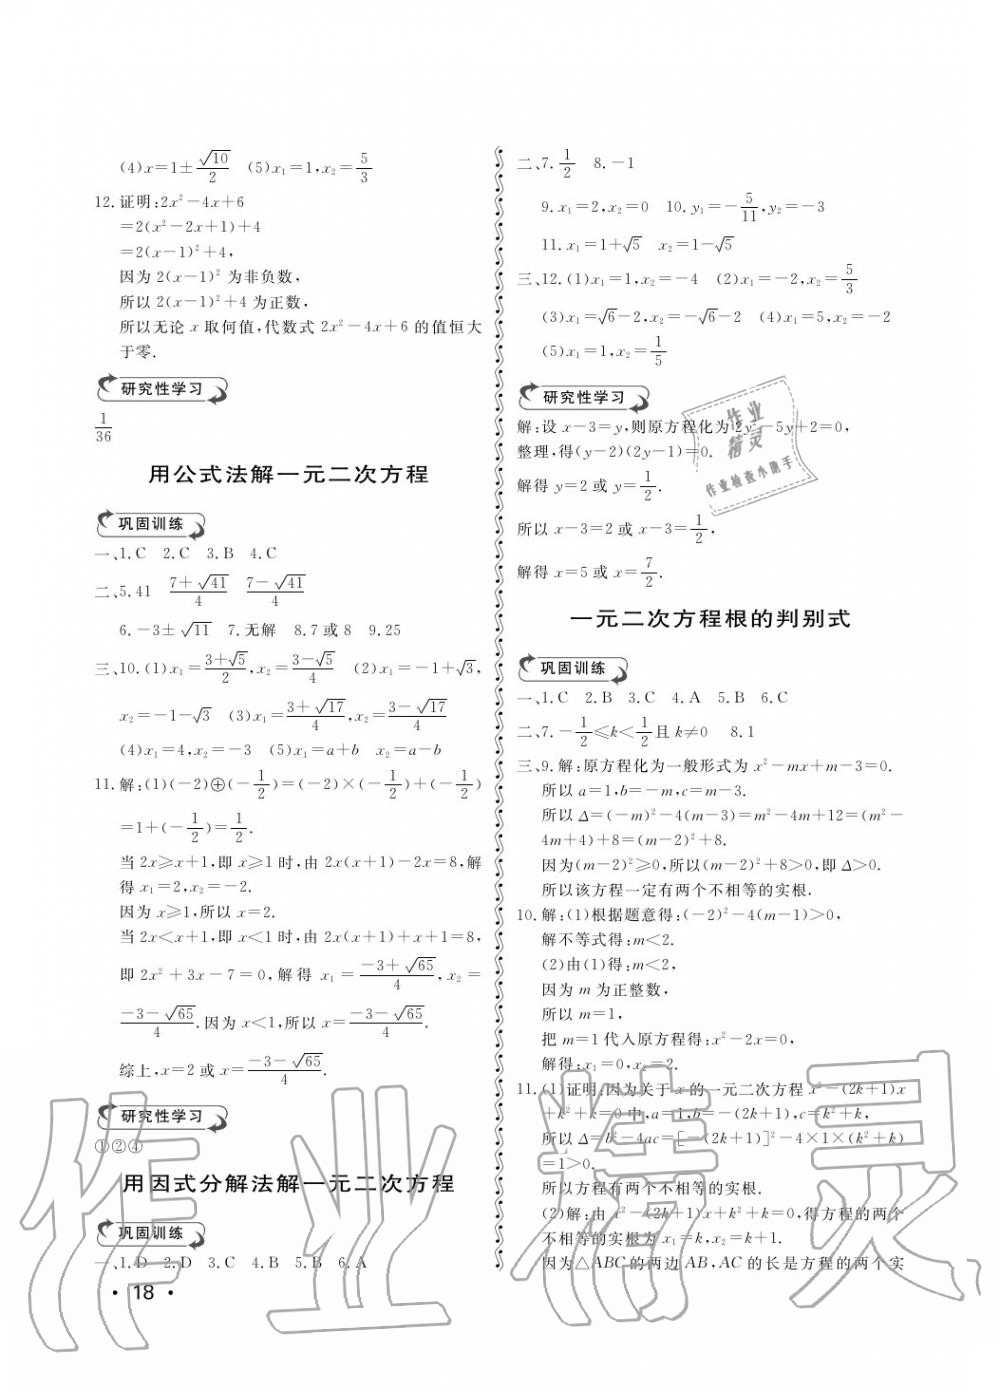 (4)x=1±√10/2 (5)x₁=1,x₂=5/3
12.证明:2x²-4x+6
=2(x²-2x+1)+4
=2(x-1)²+4,
因为 2(x-1)² 为非负数,
所以 2(x-1)²+4 为正数,
所以无论 x 取何值,代数式 2x²-4x+6 的值恒大
于零.
研究性学习
1/36
用公式法解一元二次方程
巩固训练
一、1.C 2.C 3.B 4.C
二、5.41 (7+√41)/4 (7-√41)/4
6.-3±√11 7.无解 8.7 或 8 9.25
三、10.(1)x₁=(3+√5)/2,x₂=(3-√5)/4 (2)x₁=-1+√3,
x₂=-1-√3 (3)x₁=(3+√17)/4,x₂=(3-√17)/4
(4)x₁=4,x₂=-3 (5)x₁=a+b x₂=a-b
11.解:(1)(-2)⊕(-1/2)=(-2)×(-1/2)+(-1/2)
=1+(-1/2)=1/2.
当 2x≥x+1,即 x≥1 时,由 2x(x+1)-2x=8,解
得 x₁=2,x₂=-2.
因为 x≥1,所以 x=2.
当 2x<x+1,即 x<1 时,由 2x(x+1)+x+1=8,
即 2x²+3x-7=0,解得 x₁=(-3+√65)/4,x₂=
(-3-√65)/4.因为 x<1,所以 x=(-3-√65)/4.
综上,x=2 或 x=(-3-√65)/4.
研究性学习
①②④
用因式分解法解一元二次方程
巩固训练
一、1.D 2.D 3.C 4.B 5.B 6.A
·18·
二、7.1/2 8.-1
9.x₁=2,x₂=0 10.y₁=-5/11,y₂=-3
11.x₁=1+√5 x₂=1-√5
三、12.(1)x₁=1,x₂=-4 (2)x₁=-2,x₂=5/3
(3)x₁=√6-2,x₂=-√6-2 (4)x₁=5,x₂=-2
(5)x₁=1,x₂=1/5
研究性学习
解:设 x-3=y,则原方程化为 2y²-5y+2=0,
整理,得(y-2)(2y-1)=0.
解得 y=2 或 y=1/2.
所以 x-3=2 或 x-3=1/2,
解得 x=5 或 x=7/2.
作业
精灵
作业检查小助手
一元二次方程根的判别式
巩固训练
一、1.C 2.B 3.C 4.A 5.B 6.C
二、7.-1/2≤k<1/2且 k≠0 8.1
三、9.解:原方程化为一般形式为 x²-mx+m-3=0.
所以 a=1,b=-m,c=m-3.
所以 Δ=(-m)²-4(m-3)=m²-4m+12=(m²-
4m+4)+8=(m-2)²+8.
因为(m-2)²≥0,所以(m-2)²+8>0,即 Δ>0.
所以该方程一定有两个不相等的实根.
10.解:(1)根据题意得:(-2)²-4(m-1)>0,
解不等式得:m<2.
(2)由(1)得:m<2,
因为 m 为正整数,
所以 m=1,
把 m=1 代入原方程得:x²-2x=0,
解得:x₁=0,x₂=2.
11.(1)证明:因为关于 x 的一元二次方程 x²-(2k+1)x
+k²+k=0 中,a=1,b=-(2k+1),c=k²+k,
所以 Δ=b²-4ac=[-(2k+1)]²-4×1×(k²+k)
=1>0.
所以方程有两个不相等的实根.
(2)解:由 x²-(2k+1)x+k²+k=0,得方程的两个
不相等的实根为 x₁=k,x₂=k+1.
因为△ABC 的两边 AB,AC 的长是方程的两个实
作业精灵